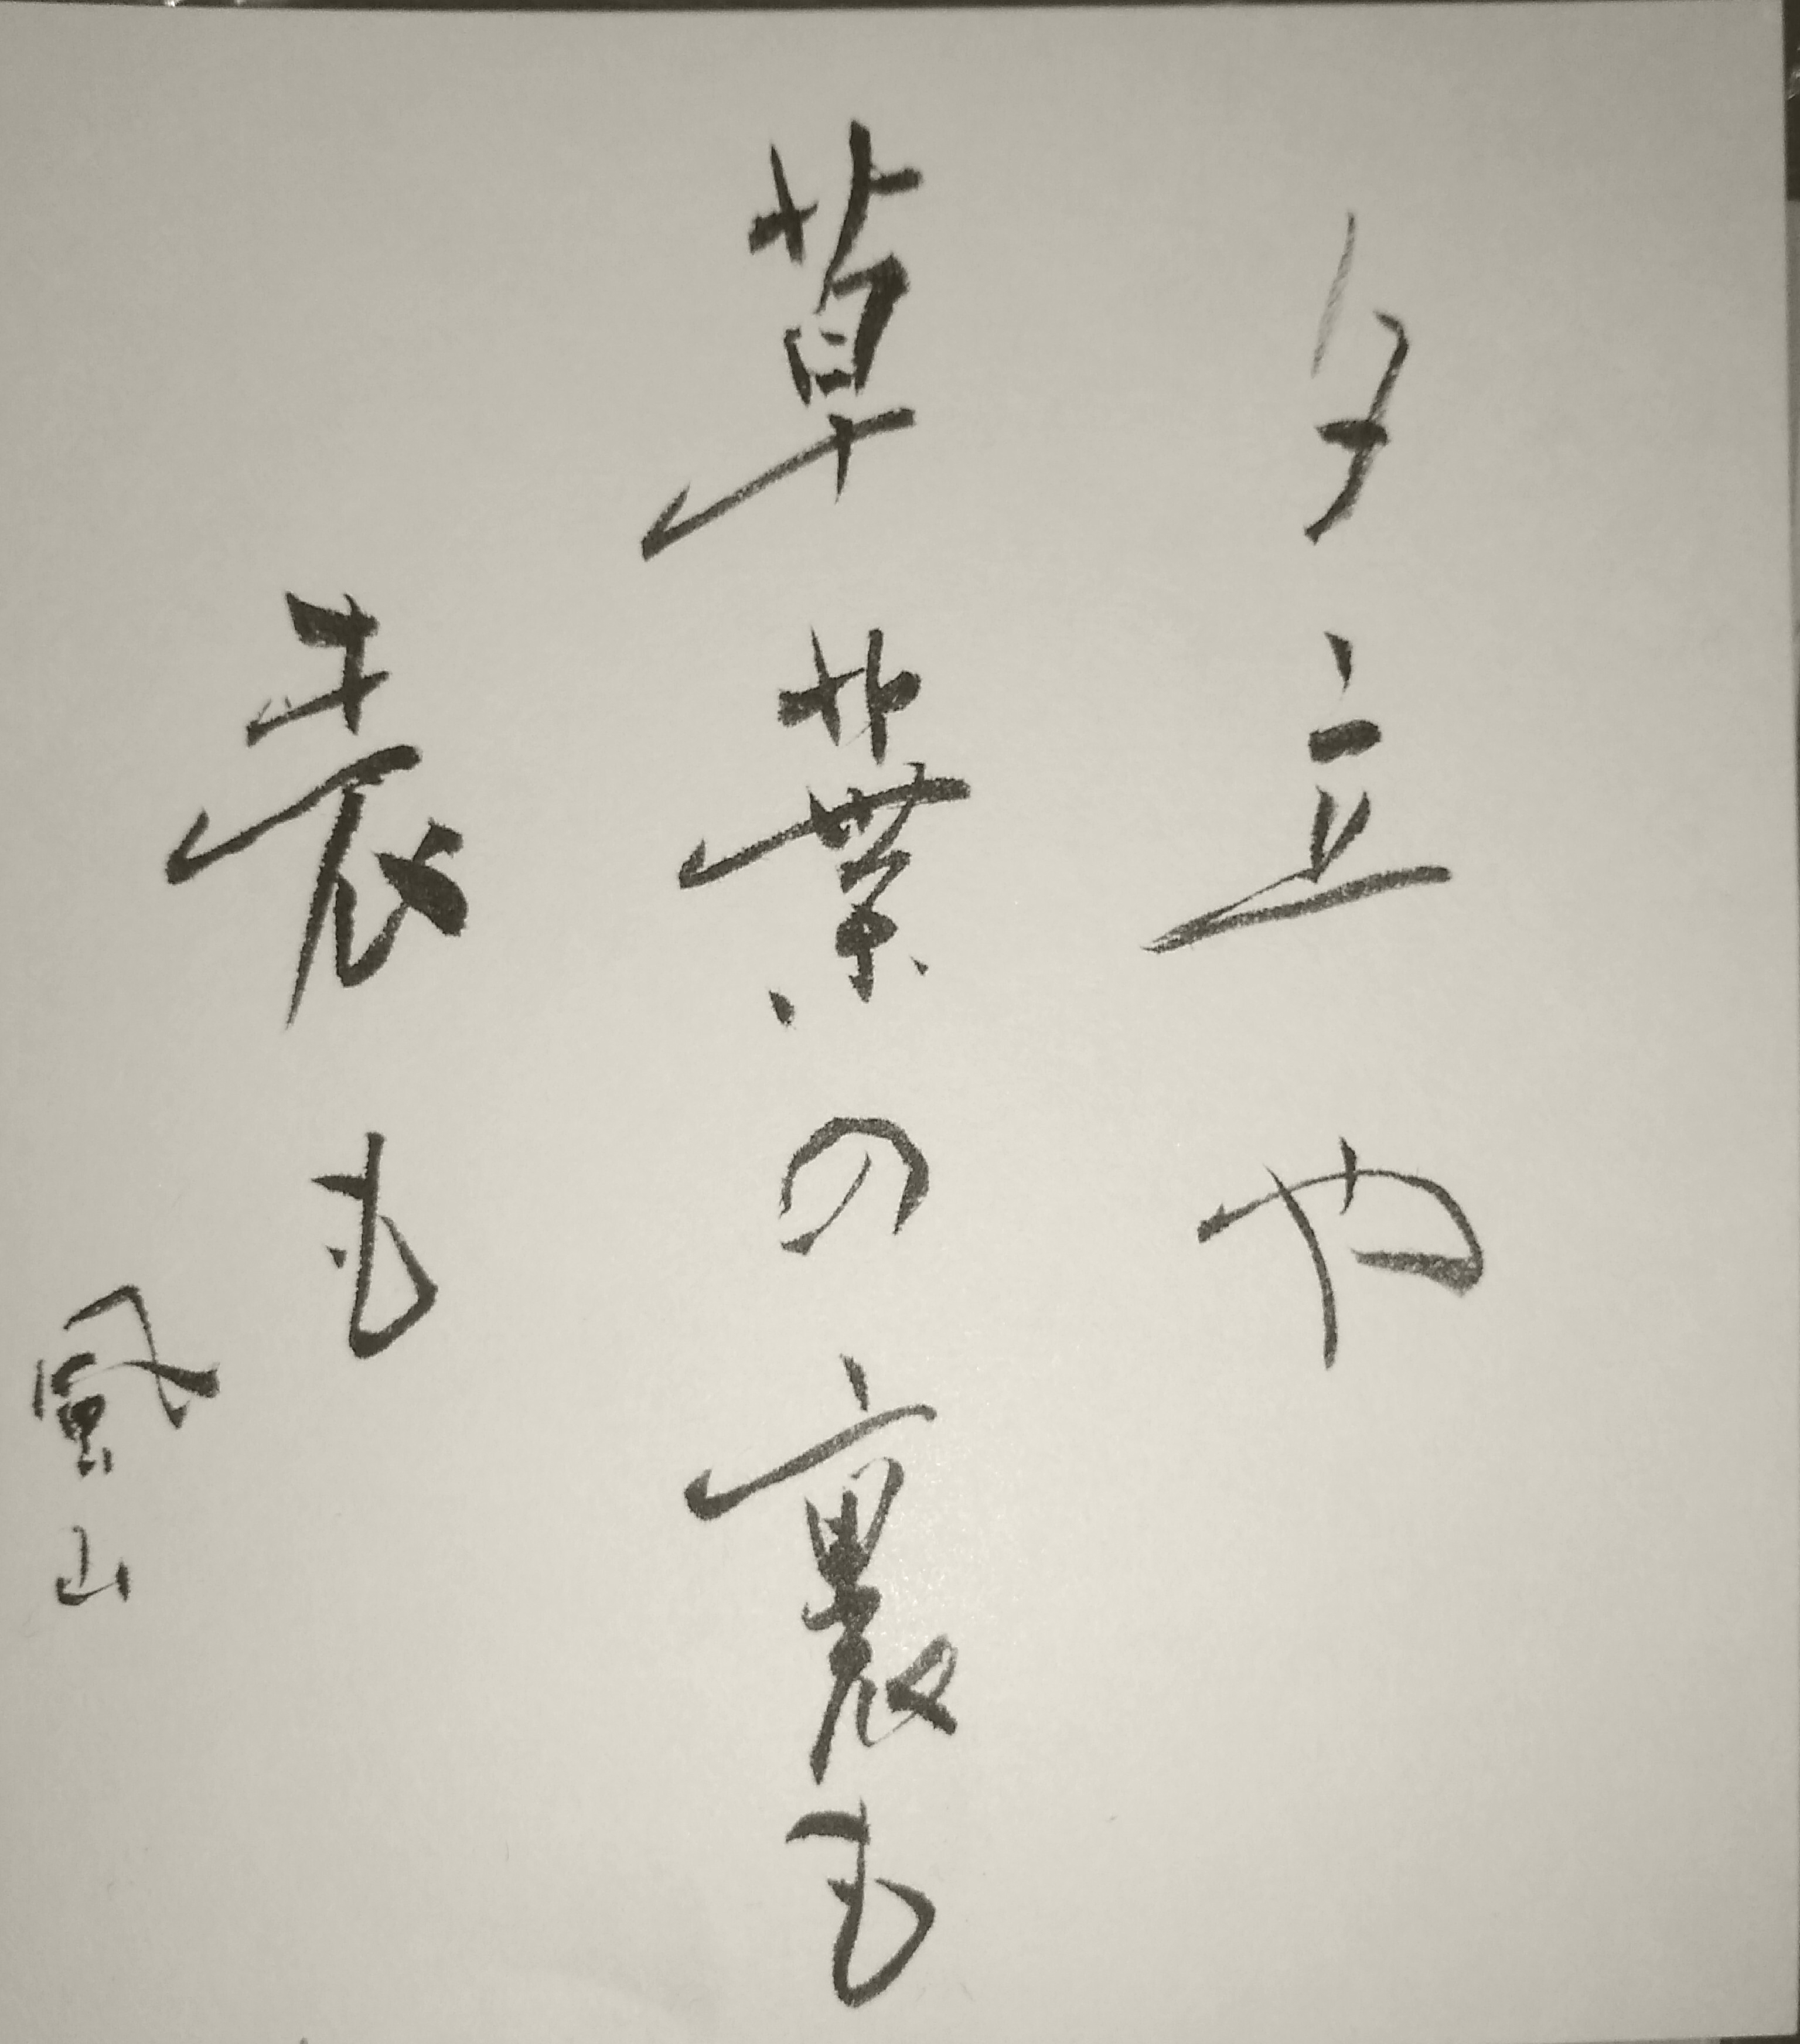 夕立や
草葉の裏も
表も
風山